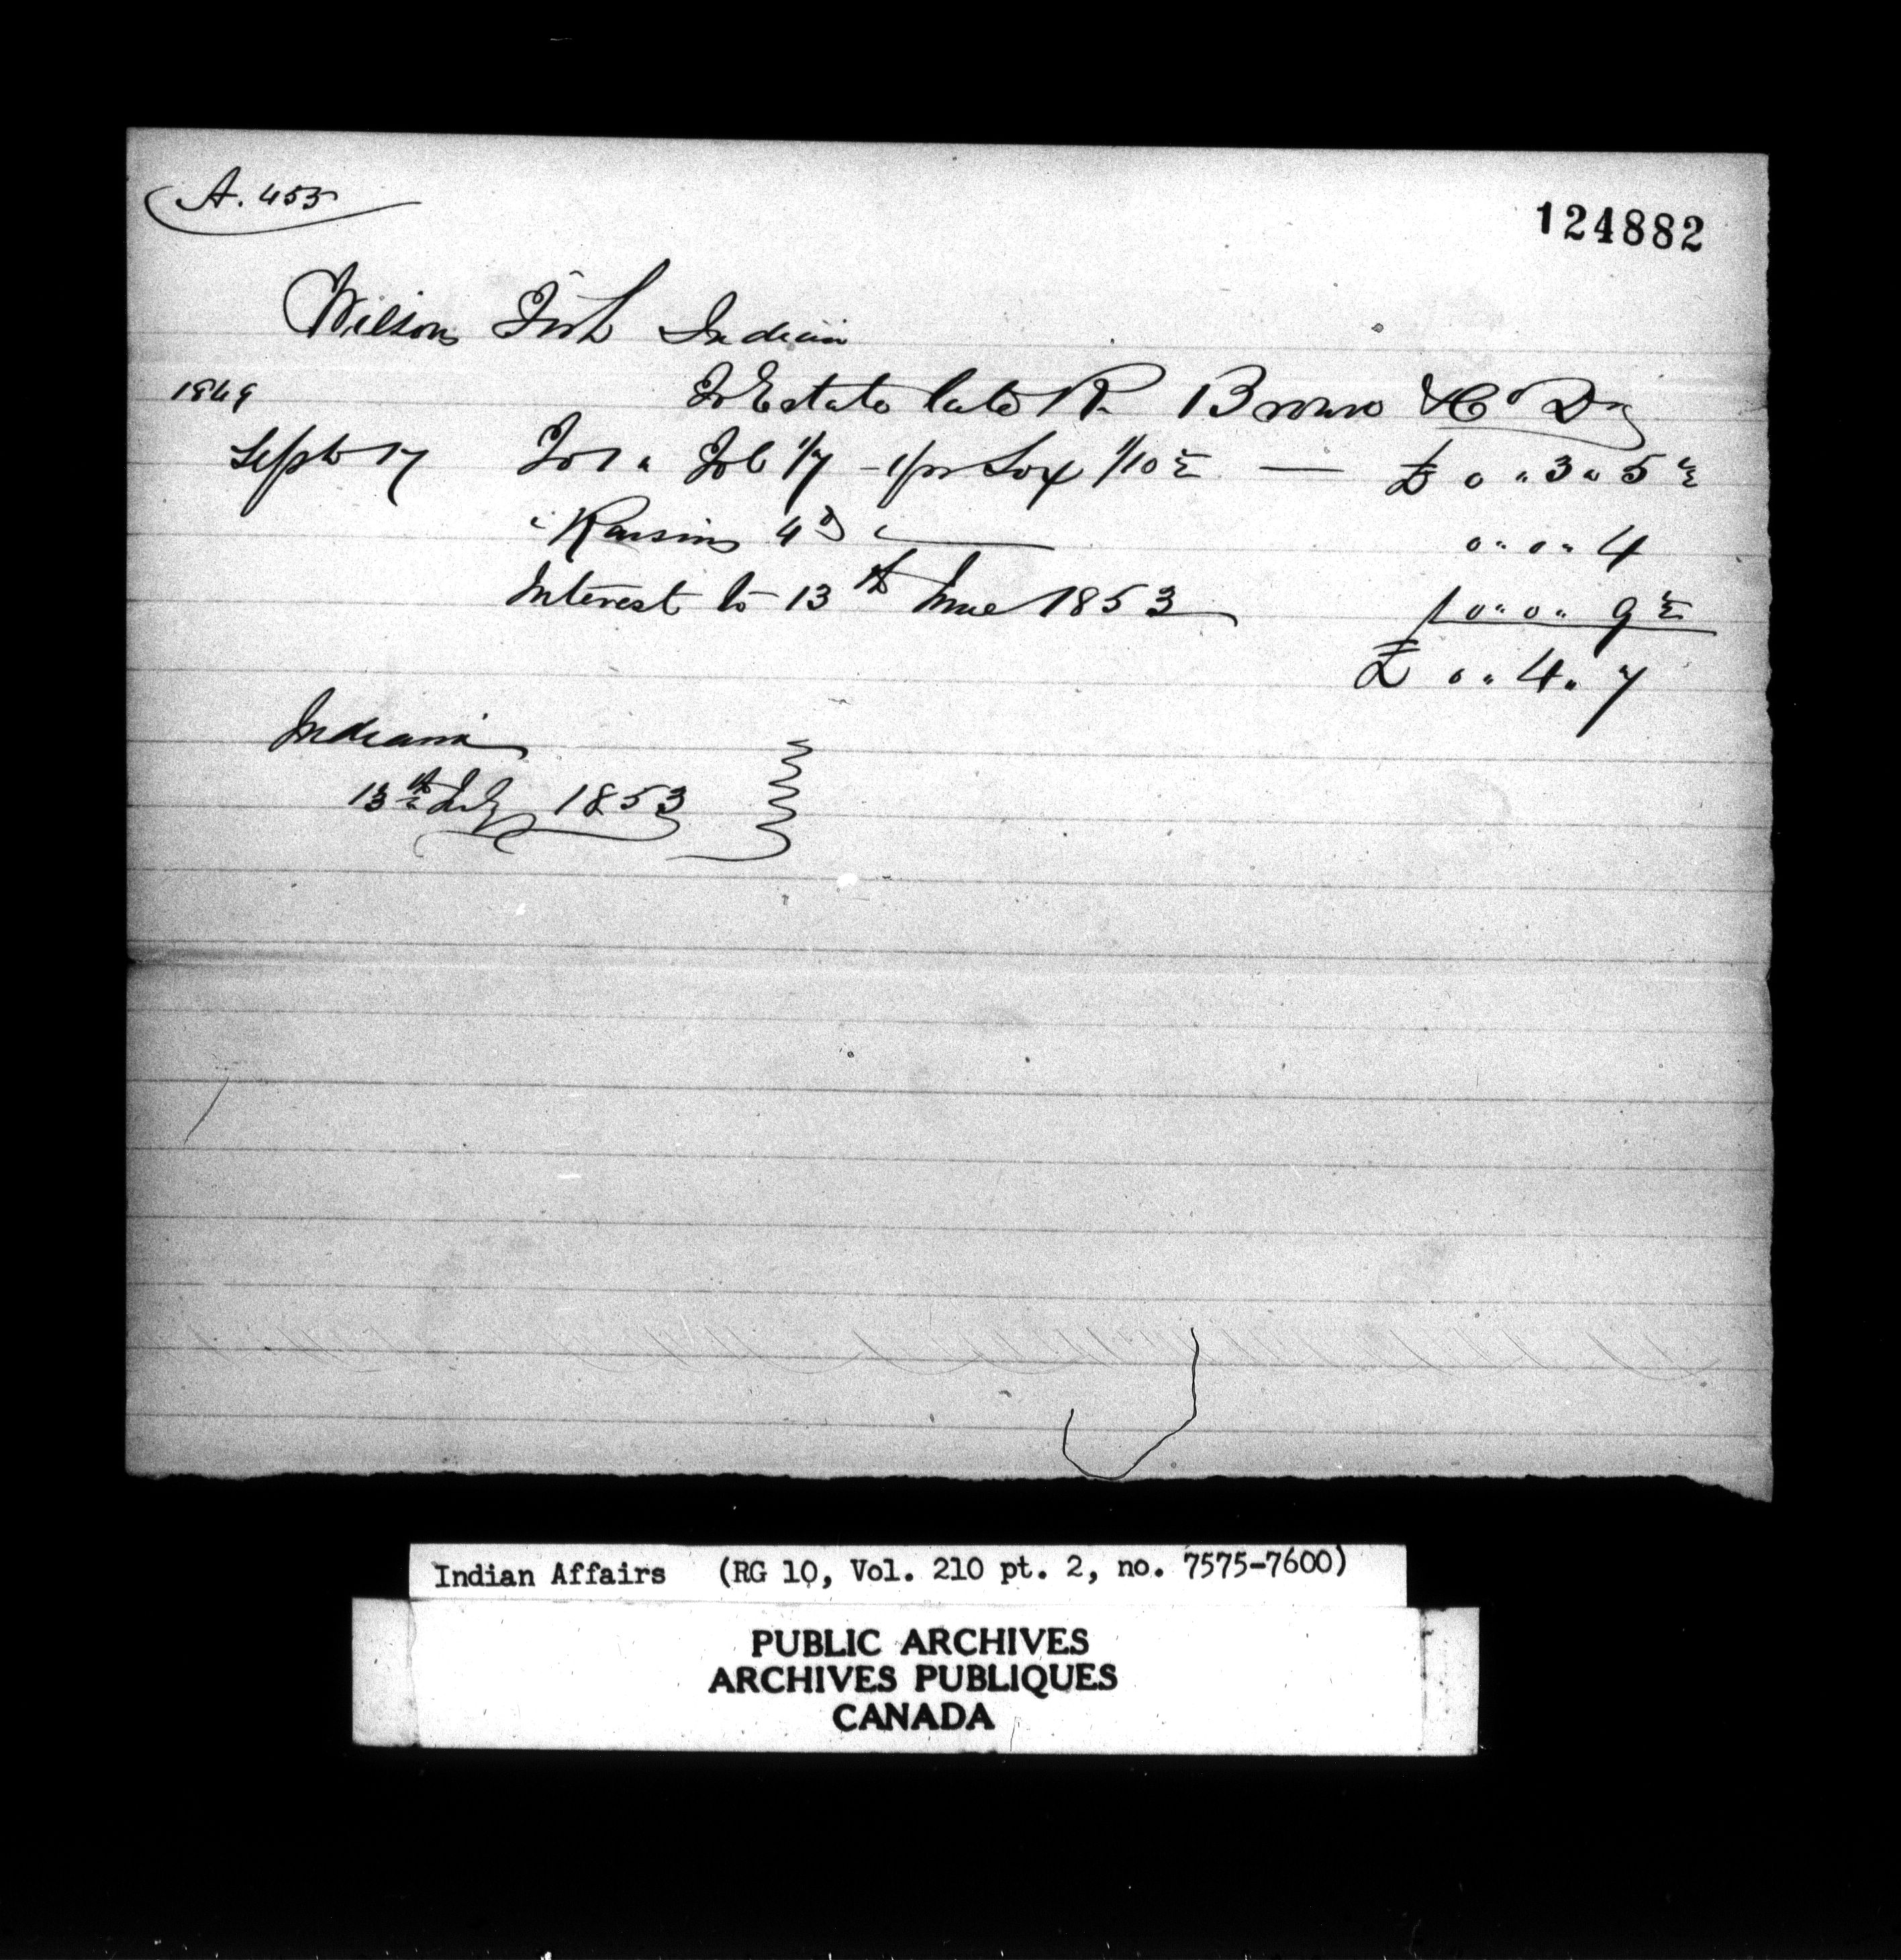 A. 455
124882
Wilson Fish Indian
1849 To Estate late R Brown & Co Dr
Sept 17 To 1 " Tob 1/7 - 1 pr Sox 1/10 ½ — £ 0 " 3 " 5 ½
" Raisins 4 D 0 " 0 " 4
Interest to 13th June 1853 0 " 0 " 9 ½
£ 0 " 4 " 7
Indiana
13th July 1853
Indian Affairs (RG 10, Vol. 210 pt. 2, no. 7575-7600)
PUBLIC ARCHIVES
ARCHIVES PUBLIQUES
CANADA